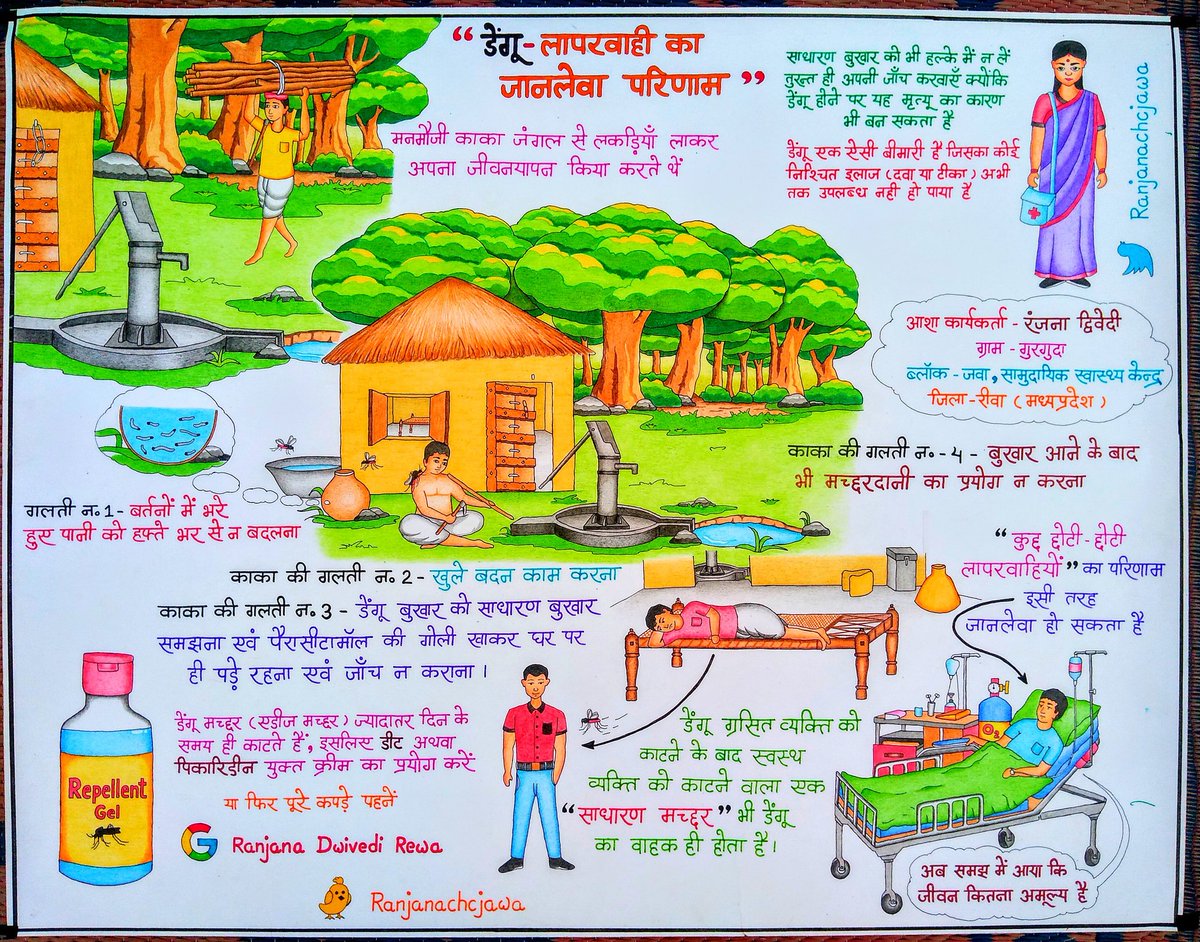 “ डेंगू - लापरवाही का
जानलेवा परिणाम ”
मनमौजी काका जंगल से लकड़ियाँ लाकर
अपना जीवनयापन किया करते थें
साधारण बुखार को भी हल्के में न लें
तुरन्त ही अपनी जाँच करवाएँ क्योंकि
डेंगू होने पर यह मृत्यू का कारण
भी बन सकता है
डेंगू एक ऐसी बीमारी है जिसका कोई
निश्चित इलाज (दवा या टीका) अभी
तक उपलब्ध नही हो पाया है
Ranjanachcjawa
आशा कार्यकर्ता - रंजना द्विवेदी
ग्राम - गुरगुदा
ब्लॉक - जवा, सामुदायिक स्वास्थ्य केन्द्र
जिला - रीवा (मध्यप्रदेश)
गलती न. 1 - बर्तनों में भरे
हुए पानी को हफ्ते भर से न बदलना
काका की गलती न. 2 - खुले बदन काम करना
काका की गलती न. 3 - डेंगू बुखार को साधारण बुखार
समझना एवं पैरासीटामॉल की गोली खाकर घर पर
ही पड़े रहना एवं जाँच न कराना ।
काका की गलती न. - 4 - बुखार आने के बाद
भी मच्छरदानी का प्रयोग न करना
“ कुछ छोटी - छोटी
लापरवाहियों ” का परिणाम
इसी तरह
जानलेवा हो सकता है
Repellent
Gel
डेंगू मच्छर (एडीज मच्छर) ज्यादातर दिन के
समय ही काटते हैं, इसलिए डीट अथवा
पिकारिडीन युक्त क्रीम का प्रयोग करें
या फिर पूरे कपड़े पहनें
G Ranjana Dwivedi Rewa
Ranjanachcjawa
डेंगू ग्रसित व्यक्ति को
काटने के बाद स्वस्थ
व्यक्ति को काटने वाला एक
“ साधारण मच्छर ” भी डेंगू
का वाहक ही होता है ।
O₂
अब समझ में आया कि
जीवन कितना अमूल्य है